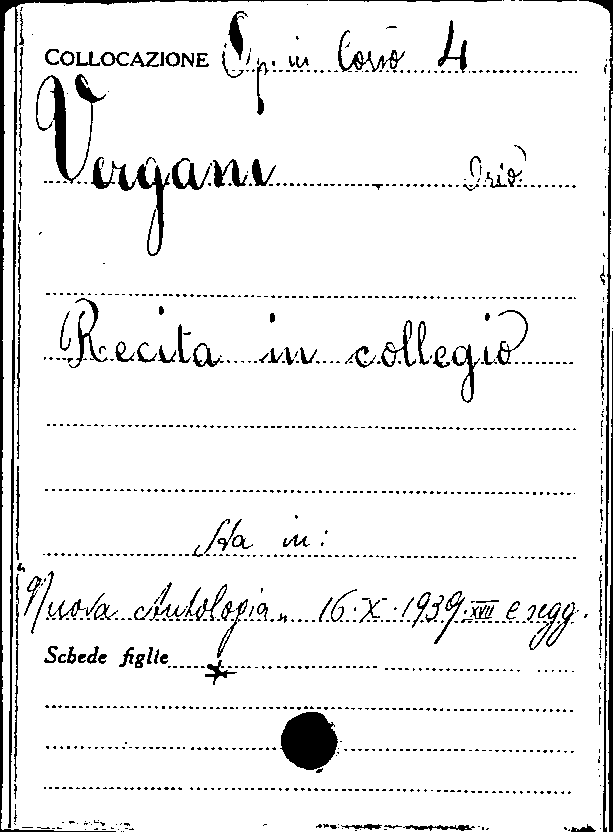 COLLOCAZIONE Sp. in Corso 4
Vergani Orio
Recita in collegio
Sta in:
"Nuova Antologia" 16.X.1939.XVII e segg.
Schede figlie